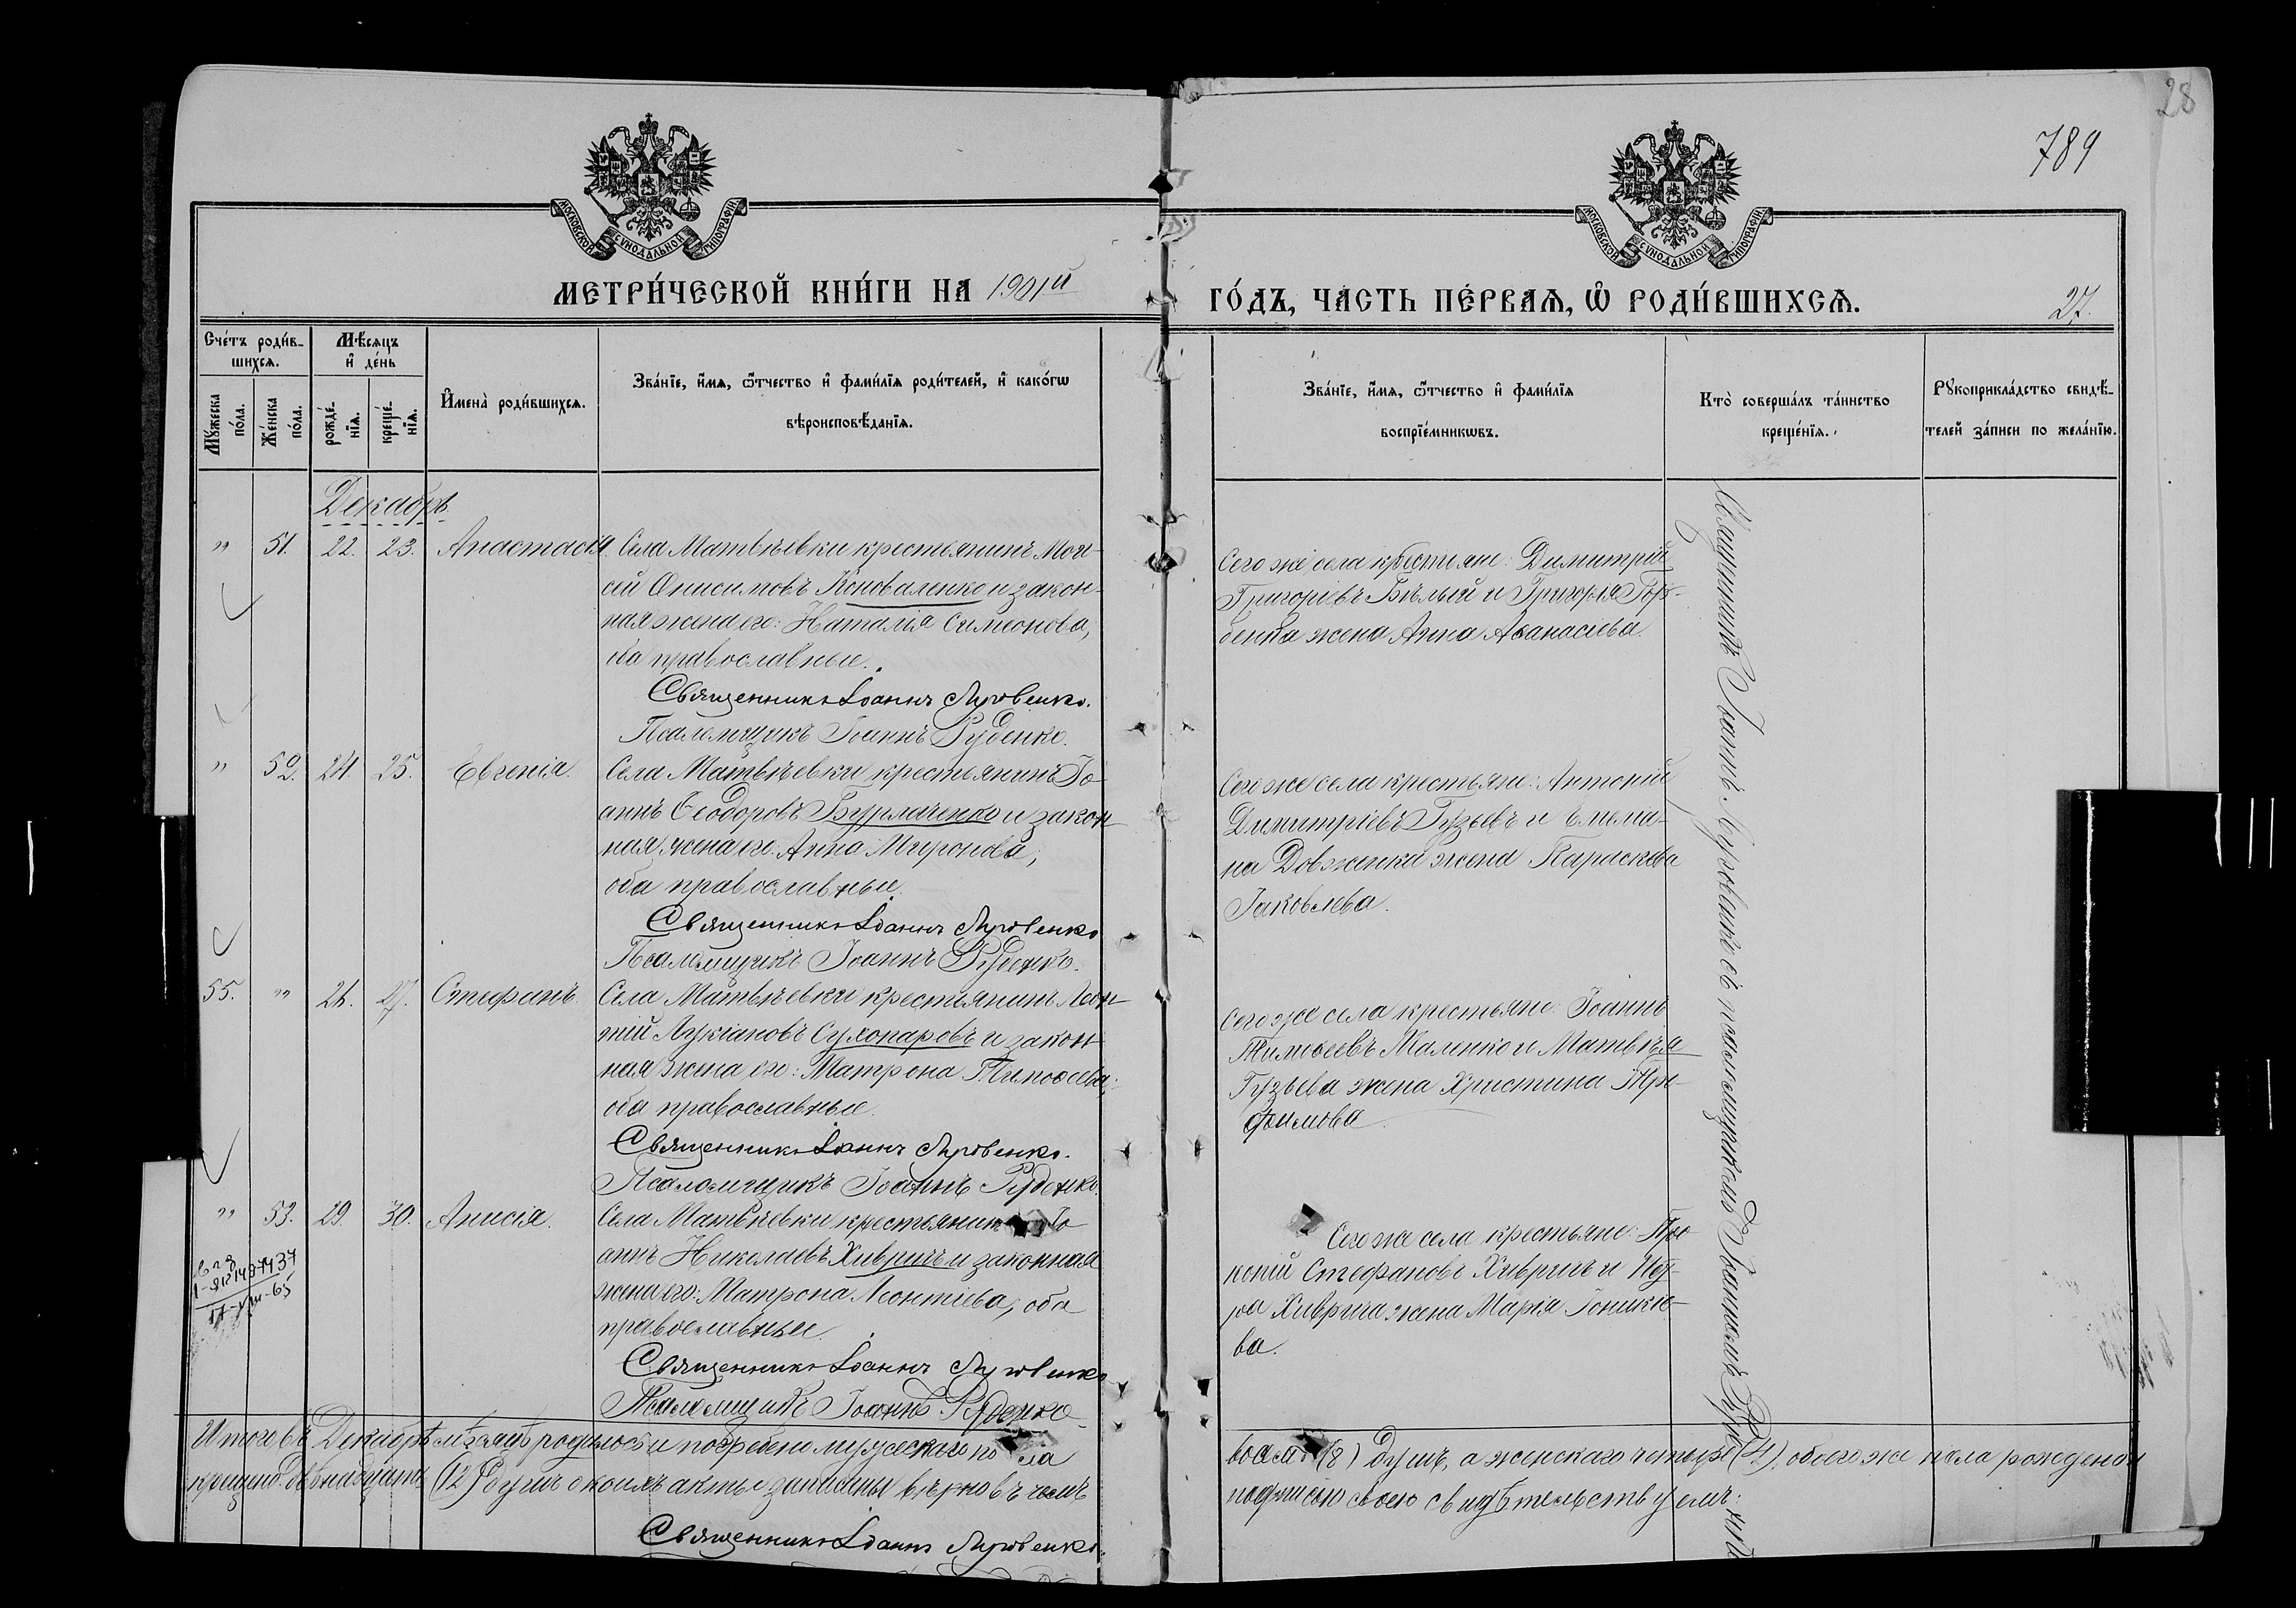 28
789
МОСКОВСКОЙ СѴНОДАЛЬНОЙ ТИПОГРАФІИ
МОСКОВСКОЙ СѴНОДАЛЬНОЙ ТИПОГРАФІИ
МЕТРИ́ЧЕСКОЙ КНИ́ГИ НА 1901й
ГО́ДЪ, ЧА́СТЬ ПЕ́РВАѦ, Ѡ РОДИ́ВШИХСѦ.
27.
Сче́тъ роди́в-
шихсѧ.
Мѣ́сѧцъ
и҆ де́нь
Мꙋ́жеска
по́ла.
Же́нска
по́ла.
рожде́-
нїѧ.
креще́-
нїѧ.
И҆мена̀ роди́вшихсѧ.
Зва́нїе, и҆́мѧ, ѻ҆́тчество и҆ фами́лїѧ роди́телей, и҆ како́гѡ
вѣроисповѣ́данїѧ.
Зва́нїе, и҆́мѧ, ѻ҆́тчество и҆ фами́лїѧ
воспрїе́мникѡвъ.
Кто̀ соверша́лъ та́инство
креще́нїѧ.
Рꙋкоприкла́дство свидѣ́-
телей за́писи по жела́нїю.
Декабрь
" 51. 22. 23. Анастасія. Села Матвѣевки крестьянинъ Мои-
сей Онисимовъ Коноваленко и закон-
ная жена его: Наталія Симеонова,
оба православные.
Священникъ Іоаннъ Луговенко.
Псаломщикъ Іоаннъ Руденко.
Сего же села крестьяне: Димитрій
Григоріевъ Бѣлый и Григорія Гор-
бенка жена Анна Аѳанасіева.
" 52. 24. 25. Евгенія. Села Матвѣевки крестьянинъ Іо-
аннъ Ѳеодоровъ Бурлаченко и закон-
ная жена его Анна Миронова,
оба православные.
Священникъ Іоаннъ Луговенко
Псаломщикъ Іоаннъ Руденко.
Сего же села крестьяне: Антоній
Димитріевъ Гузь и Емелиа-
на Довженка жена Параскева
Іаковлева.
55. " 26. 27. Стефанъ. Села Матвѣевки крестьянинъ Леон-
тій Лукіановъ Сухопаровъ и закон-
ная жена его: Матрона Тимоѳеева,
оба православные.
Священникъ Іоаннъ Луговенко.
Псаломщикъ Іоаннъ Руденко.
Сего же села крестьяне: Іоаннъ
Тимоѳеевъ Маленко и Матвѣя
Гузьева жена Христина Тро-
фимова.
" 53. 29. 30. Анисія. Села Матвѣевки крестьянинъ Іо-
аннъ Николаевъ Хивричъ и законная
жена его: Матрона Леонтіева, оба
православные.
Священникъ Іоаннъ Луговенко
Псаломщикъ Іоаннъ Руденко
Сего же села крестьяне: Про-
копій Стефановъ Хивричъ и
Хиврича жена Марія Іоникіе-
ва.
Священникъ Іоаннъ Луговенко съ псаломщикомъ Іоанномъ Руденко
Итого въ Декабрѣ мѣсяцѣ родилось и погребено мужескаго пола
восемь (8) душъ, а женскаго четыре (4), обоего же пола рождено и
крещено двѣнадцать (12) душъ о коихъ акты записаны вѣрно въ чемъ
подписью своею свидѣтельствуемъ:
Священникъ Іоаннъ Луговенко.